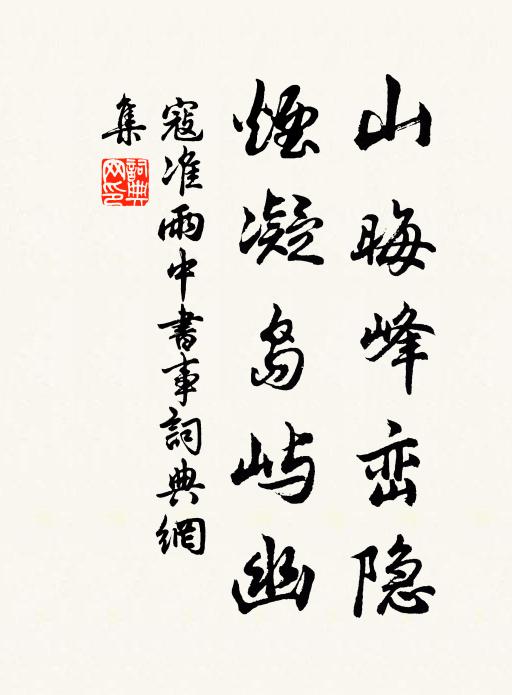 山晦峰峦隐
煙凝岛屿幽
寇准雨中書事詞典網
集
詞典
网印